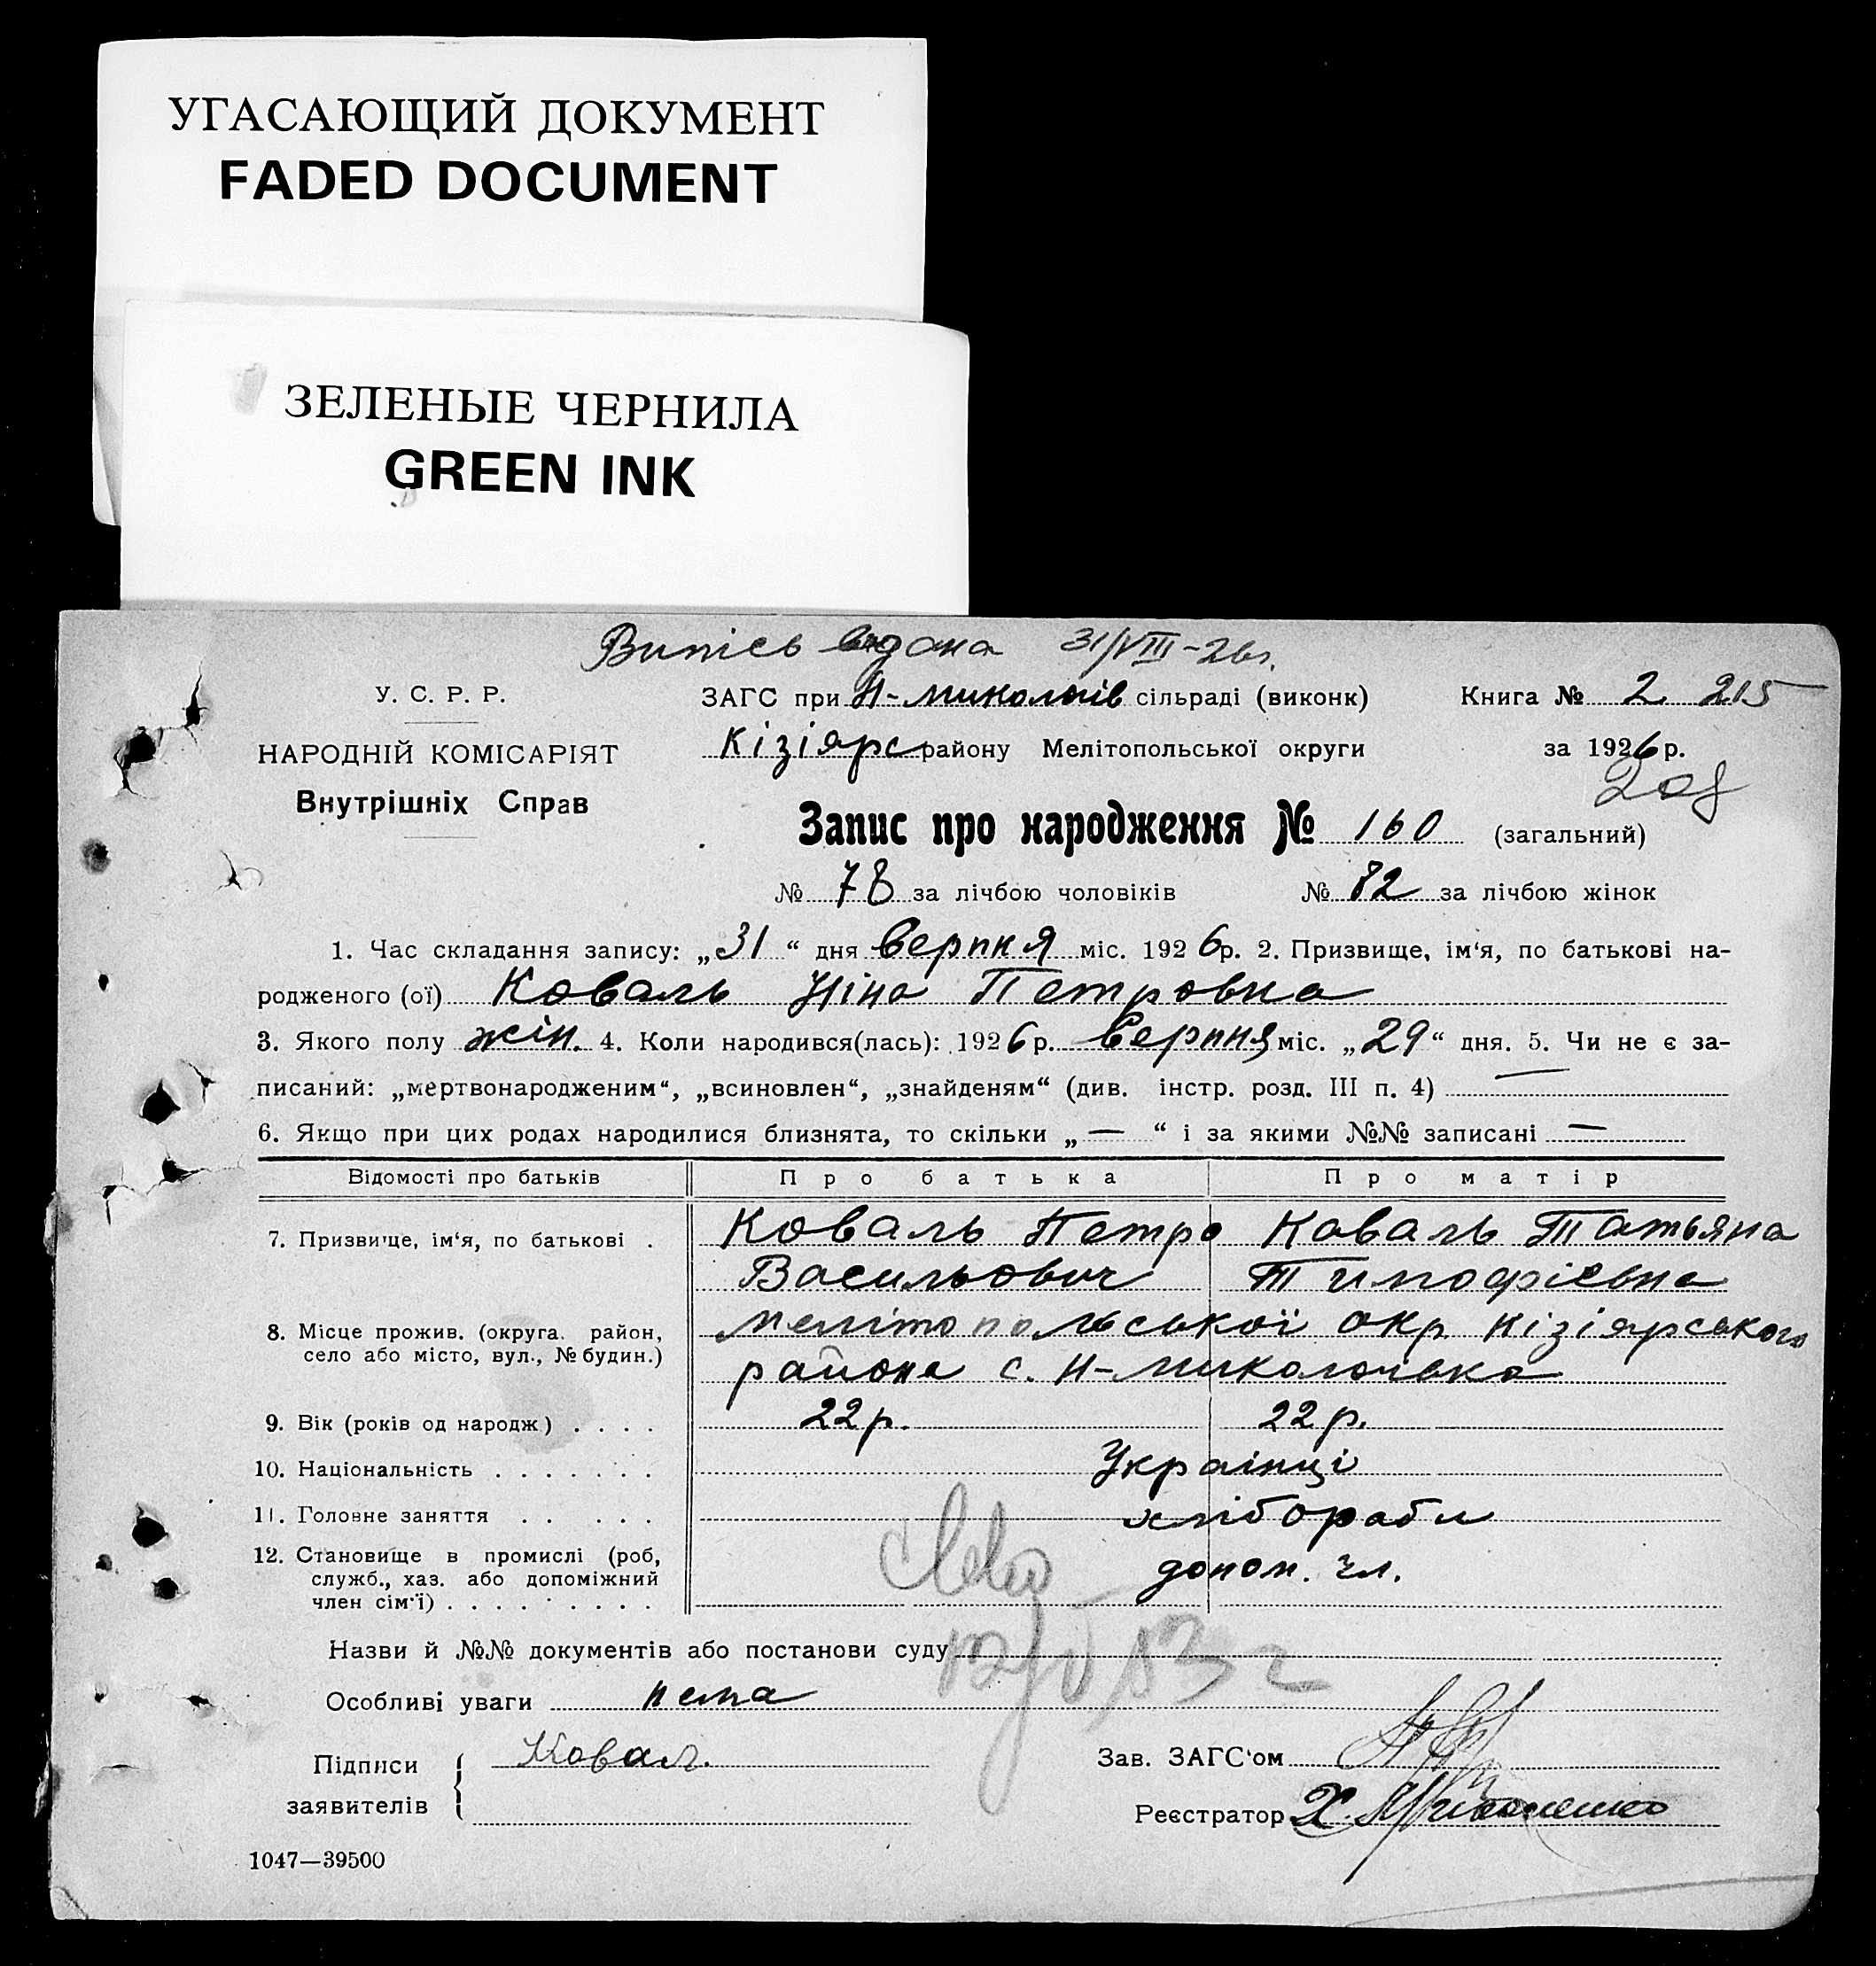 УГАСАЮЩИЙ ДОКУМЕНТ
FADED DOCUMENT
ЗЕЛЕНЫЕ ЧЕРНИЛА
GREEN INK
Випісь видана 31/VIII-26г.
У. С. Р. Р.
НАРОДНІЙ КОМІСАРІЯТ
Внутрішніх Справ
ЗАГС при Н-Миколаїв сільраді (виконк)
Книга № 2 215
Кізіярс району Мелітопольської округи
за 1926 р.
208
Запис про народження № 160 (загальний)
№ 78 за лічбою чоловіків № 82 за лічбою жінок
1. Час складання запису: „31“ дня Серпня міс. 1926р. 2. Призвище, ім‘я, по батькові на-
родженого (ої) Коваль Ніна Петровна
3. Якого полу жін. 4. Коли народився(лась): 1926р. Серпня міс. „29“ дня. 5. Чи не є за-
писаний: „мертвонародженим“, „всиновлен“, „знайденям“ (див. інстр. розд. III п. 4) —
6. Якщо при цих родах народилися близнята, то скільки „—“ і за якими №№ записані —
Відомості про батьків Про батька Про матір
7. Призвище, ім‘я, по батькові . Коваль Петро Коваль Татьяна
Васильович Тимофієвна
8. Місце прожив. (округа. район, Мелітопольської окр Кізіярського
село або місто, вул., № будин.) района с. Н-Миколаївка
9. Вік (років од народж) . . . . 22 р. 22 р.
10. Національність . . . . . . . Українці
11. Головне заняття . . . . . хлібороби
12. Становище в промислі (роб, допом. чл.
служб., хаз. або допоміжний
член сім‘ї) . . . . . . . . .
Назви й №№ документів або постанови суду
Особливі уваги нема
Підписи
заявителів
Ковал.
Зав. ЗАГС‘ом
Реєстратор
1047—39500